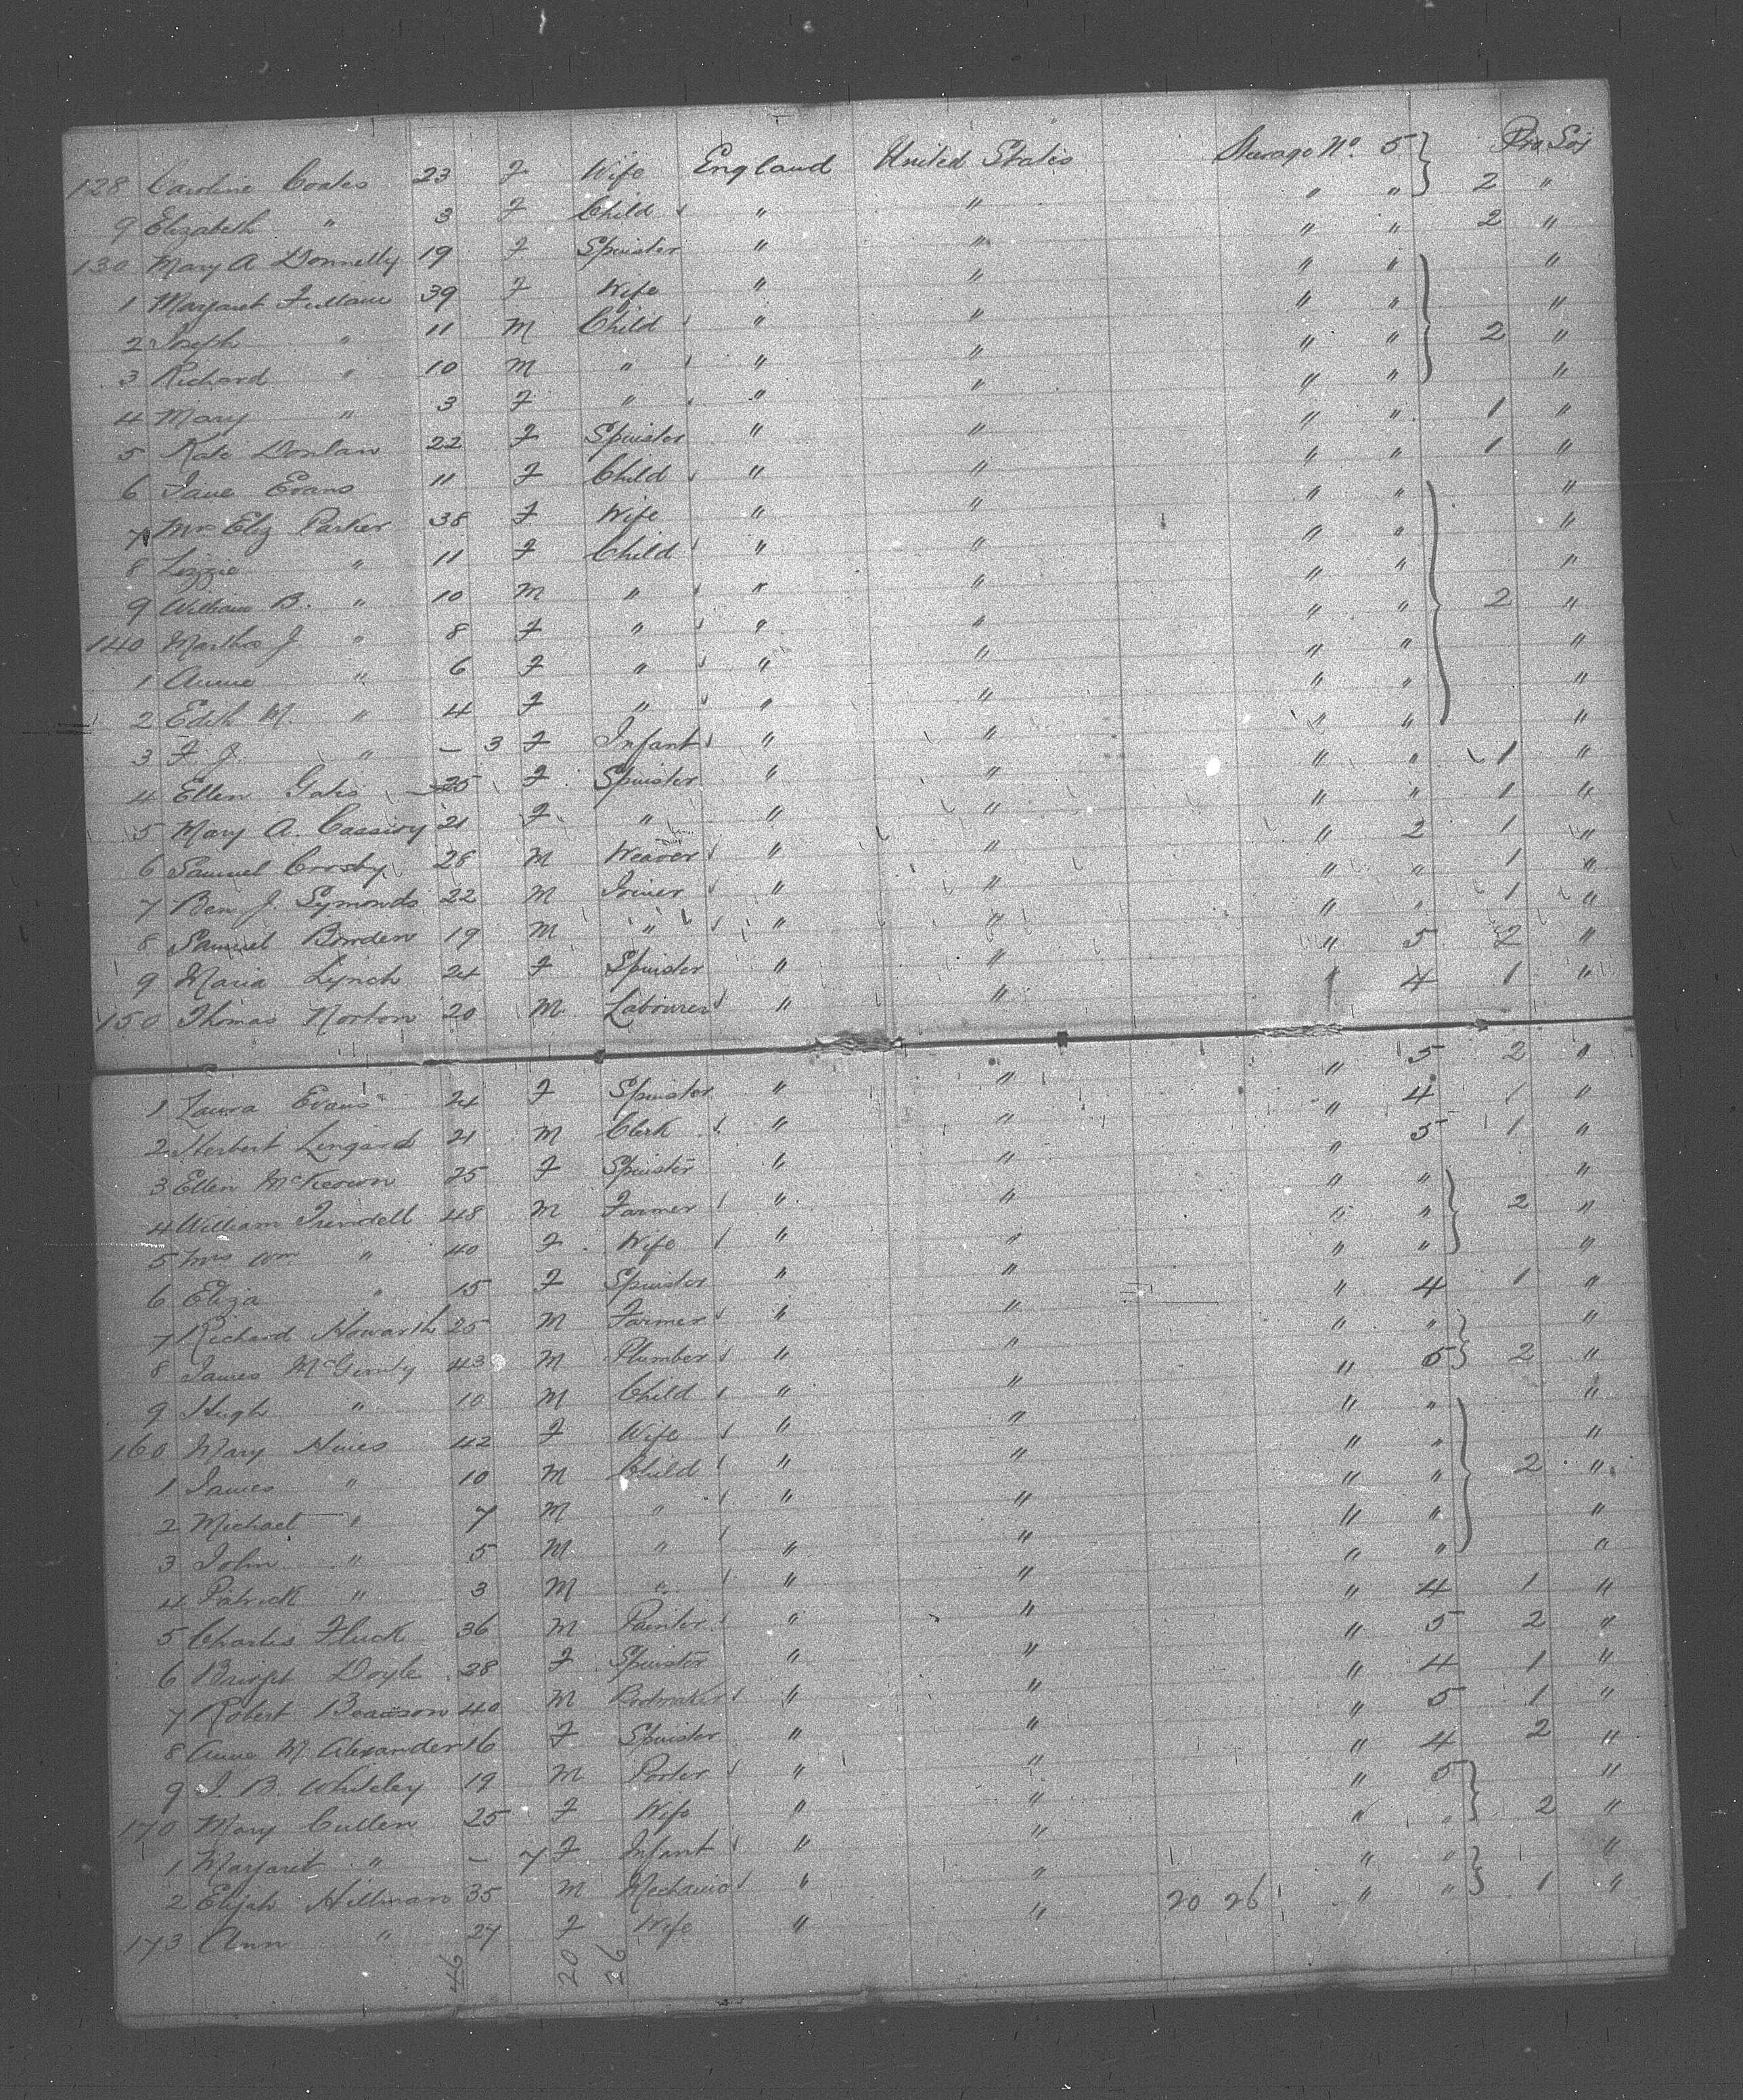 128 Caroline Coates 23 F Wife England United States Steerage No. 5 } Pro Soj
9 Elizabeth " 3 F Child " " " " 2 "
130 Mary A Donnelly 19 F Spinster " " " " 2 "
1 Margaret Fullam 39 F Wife " " " " "
2 Joseph " 11 M Child " " " " "
3 Richard " 10 M " " " " " 2 "
4 Mary " 3 F " " " " " "
5 Kate Donlan 22 F Spinster " " " " 1 "
6 Jane Evans 11 F Child " " " " 1 "
7 Mrs Eliz Parker 38 F Wife " " " " "
8 Lizzie " 11 F Child " " " " "
9 William B. " 10 M " " " " " "
140 Martha J. " 8 F " " " " " 2 "
1 Annie " 6 F " " " " " "
2 Edith M. " 4 F " " " " " "
3 F. J. " - 3 F Infant " " " " "
4 Ellen Gates 25 F Spinster " " " " 1 "
5 Mary A. Cassidy 21 F " " " " " 1 "
6 Samuel Crosby 28 M Weaver " " " 2 1 "
7 Ben J. Symonds 22 M Joiner " " " " 1 "
8 Samuel Bowden 19 M " " " " " 1 "
9 Maria Lynch 24 F Spinster " " " 5 2 "
150 Thomas Norton 20 M Labourer " " 4 1 "
1 Laura Evans 24 F Spinster " " " 5 2 "
2 Herbert Lingard 21 M Clerk " " " 4 1 "
3 Ellen McKeown 25 F Spinster " " " 5 1 "
4 William Trendell 48 M Farmer " " " " "
5 Mrs Wm " 40 F Wife " " " " 2 "
6 Eliza " 15 F Spinster " " " " "
7 Richard Howarth 25 M Farmer " " " 4 1 "
8 James McGinity 43 M Plumber " " " " "
9 Hugh " 10 M Child " " " 5 2 "
160 Mary Hines 42 F Wife " " " " "
1 James " 10 M Child " " " " "
2 Michael " 7 M " " " " " 2 "
3 John " 5 M " " " " " "
4 Patrick " 3 M " " " " " "
5 Charles Fluck 36 M Painter " " " 4 1 "
6 Bridget Doyle 28 F Spinster " " " 5 2 "
7 Robert Beacson 40 M Bootmaker " " " 4 1 "
8 Anne M. Alexander 16 F Spinster " " " 5 1 "
9 J. B. Whiteley 19 M Porter " " " 4 2 "
170 Mary Cullen 25 F Wife " " " 5 "
1 Margaret " - 7 F Infant " " " " 2 "
2 Elijah Hillman 35 M Mechanic " " " " "
173 Ann " 27 F Wife " " 20 26 " " 1 "
46 20 26